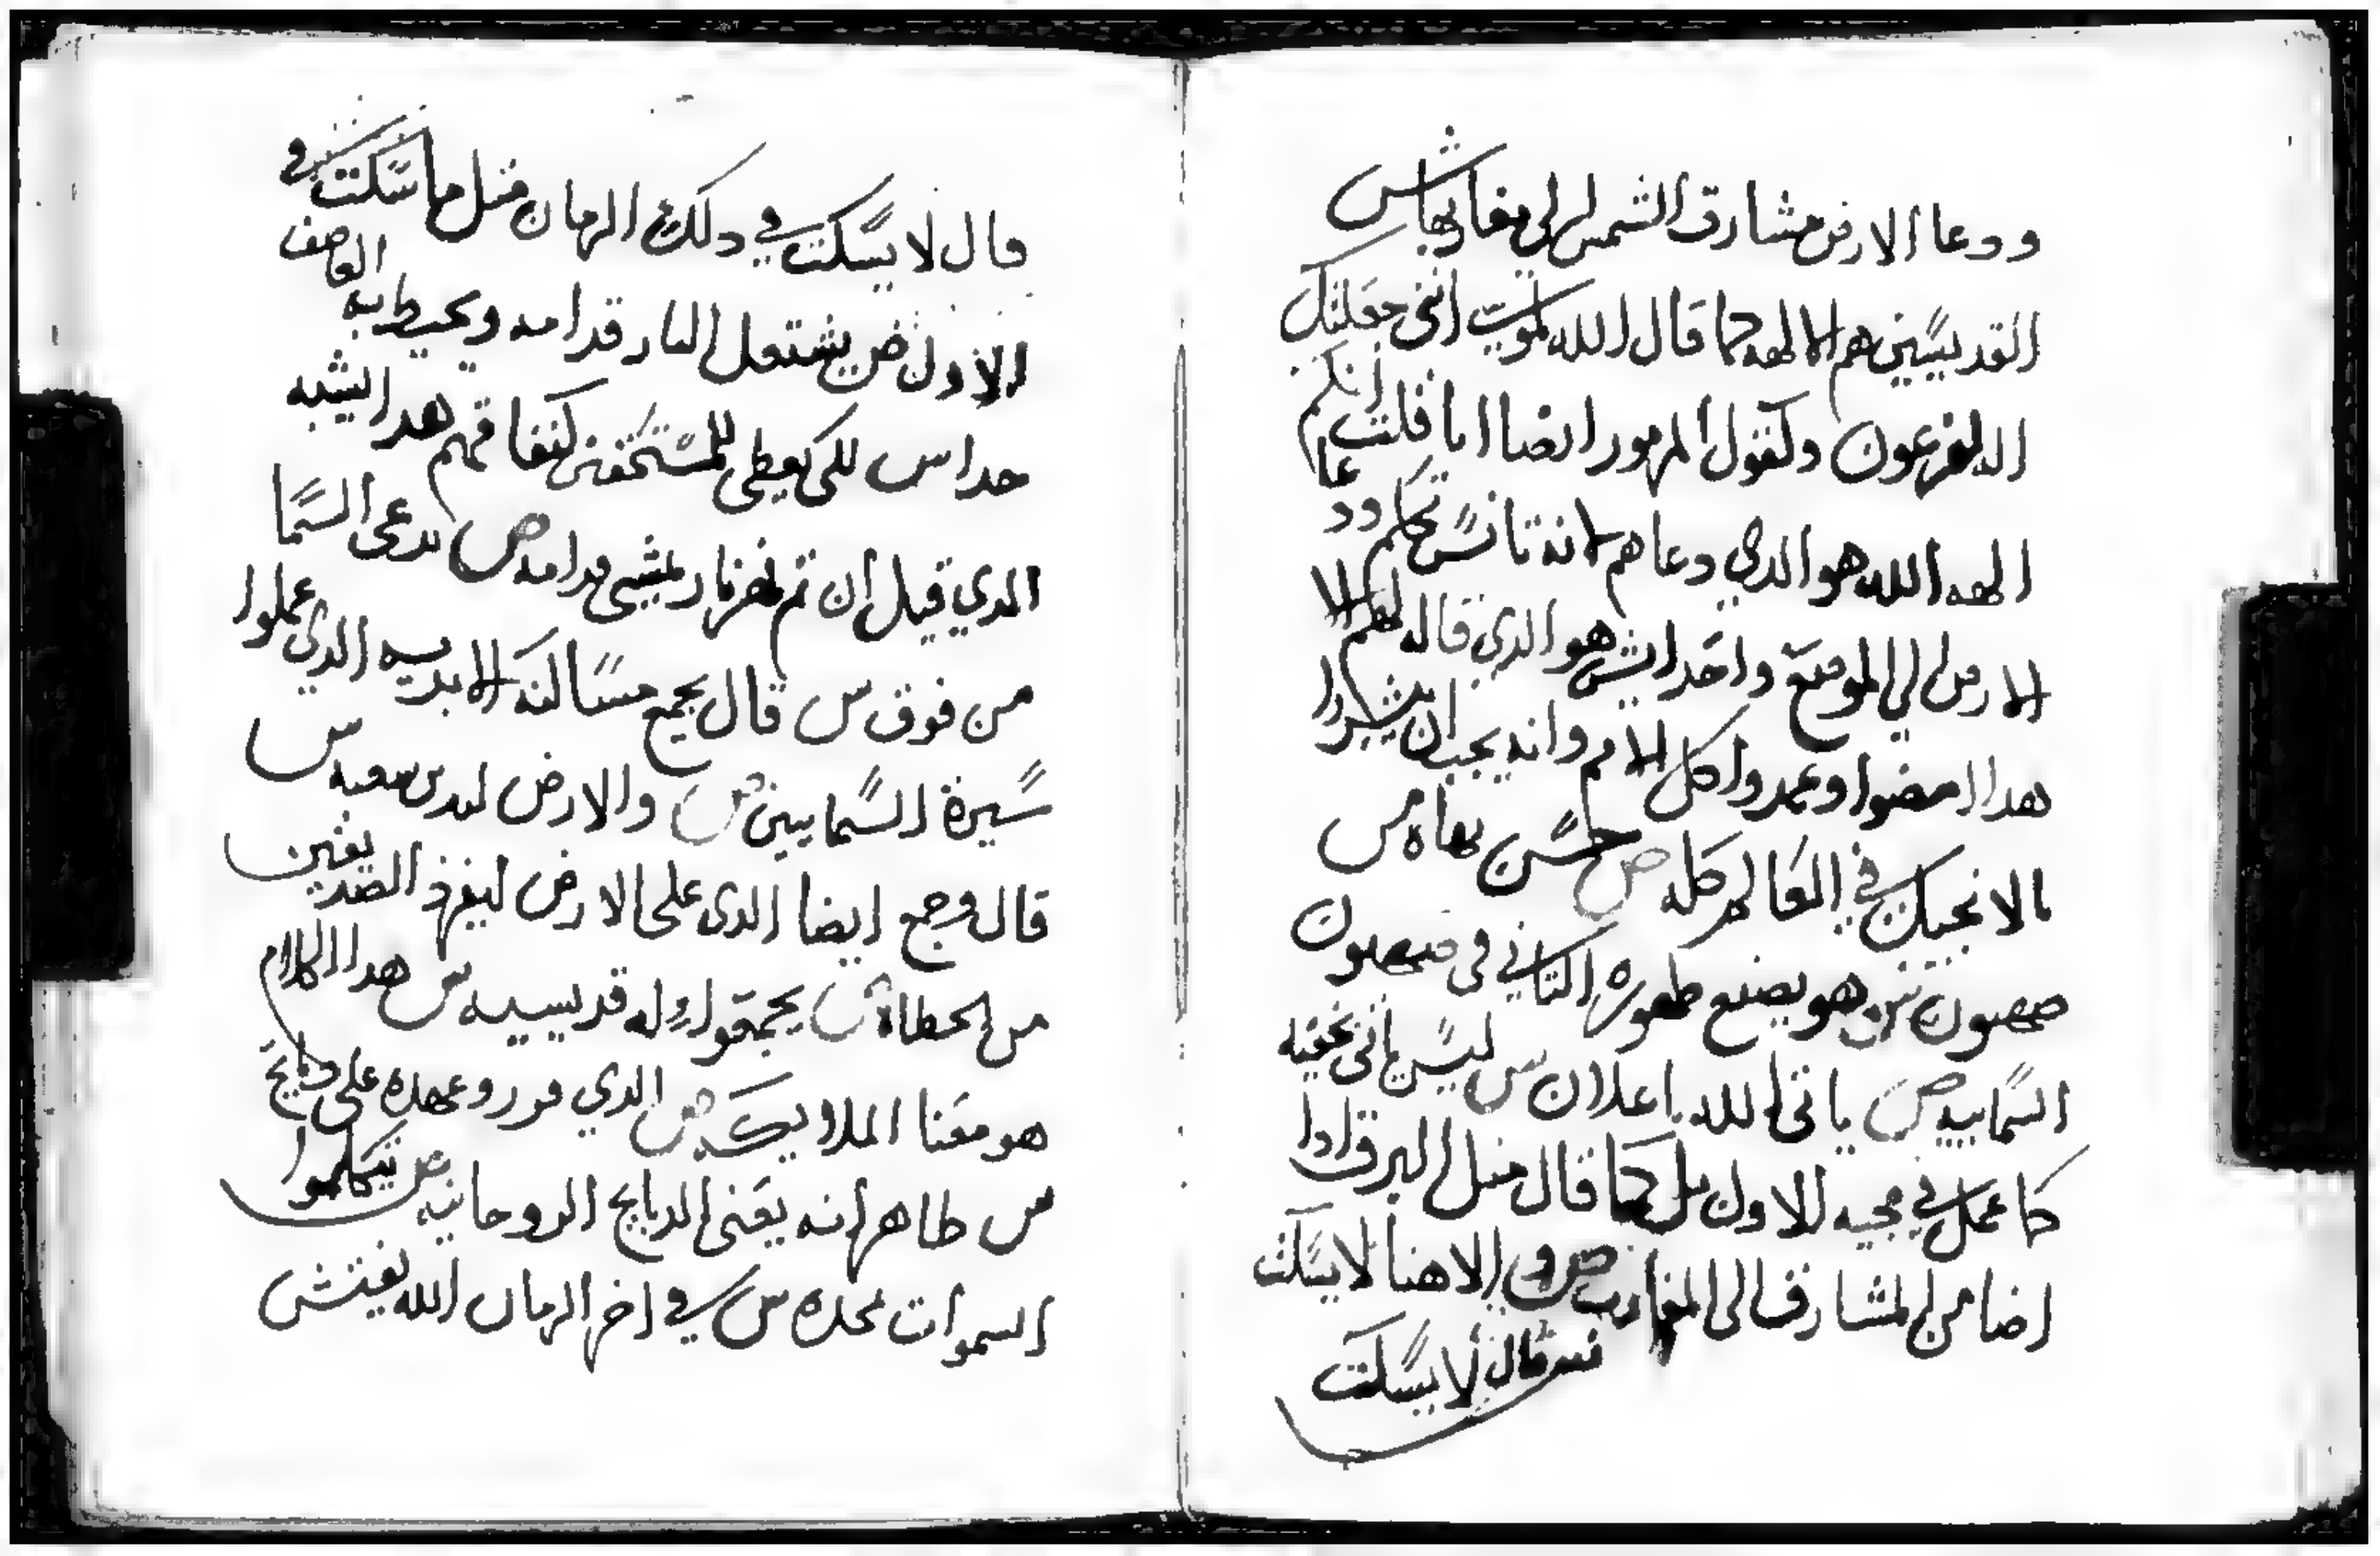 ودعا الارض مشارق الشمس الي مغاربها س
القديسين هم الالهه كما قال الله لموسي انني جعلتك
اله لفرعون وكقول المزمور ايضا انا قلت انكم
الهه الله هو الدي دعاهم لانه تانس تكلم ودعا
الارض الي الموضع واحد ايش هو الدي قاله لهم الا
هدا امضوا وعمدوا كل الامم وانه يجب ان يبشروا
بالانجيل في العالم كله ص حسن بهاه من
صهيون س هو يصنع ظهوره التاني في صهيون
السماييه ص ياتي الله اعلان س ليس ياتي بخفيه
كما عمل في مجيه الاول بل كما قال متل البرق ادا
اضا من المشارق الى المغارب ص والاهنا لا يسكت
قال لا يسكت
قال لا يسكت في دلك الزمان متل ما سكت في
الاول ص يشتعل النار قدامه ويحيط به العاصف
جدا س لكي يعطي للمستحقين كنفاقهم هدا يشبه
الدي قيل ان تم نهر نار يمشي قدامه ص يدعى السما
من فوق س قال يجمع مساكنه الابديه الدي عملوا
سيرة السماييين ص والارض ليدين شعبه س
قال وجمع ايضا الدى على الارض ليفرز الصديقين
من الخطاة ص يجمعوا له قديسيه س هدا الكلام
هو معنا الملايكه ص الدي قرروعهده على دبايح
س ظاهر انه يعنى الدبايح الروحانيه ص تتكلموا
السموات بمجده س في اخر الزمان الله يفتش